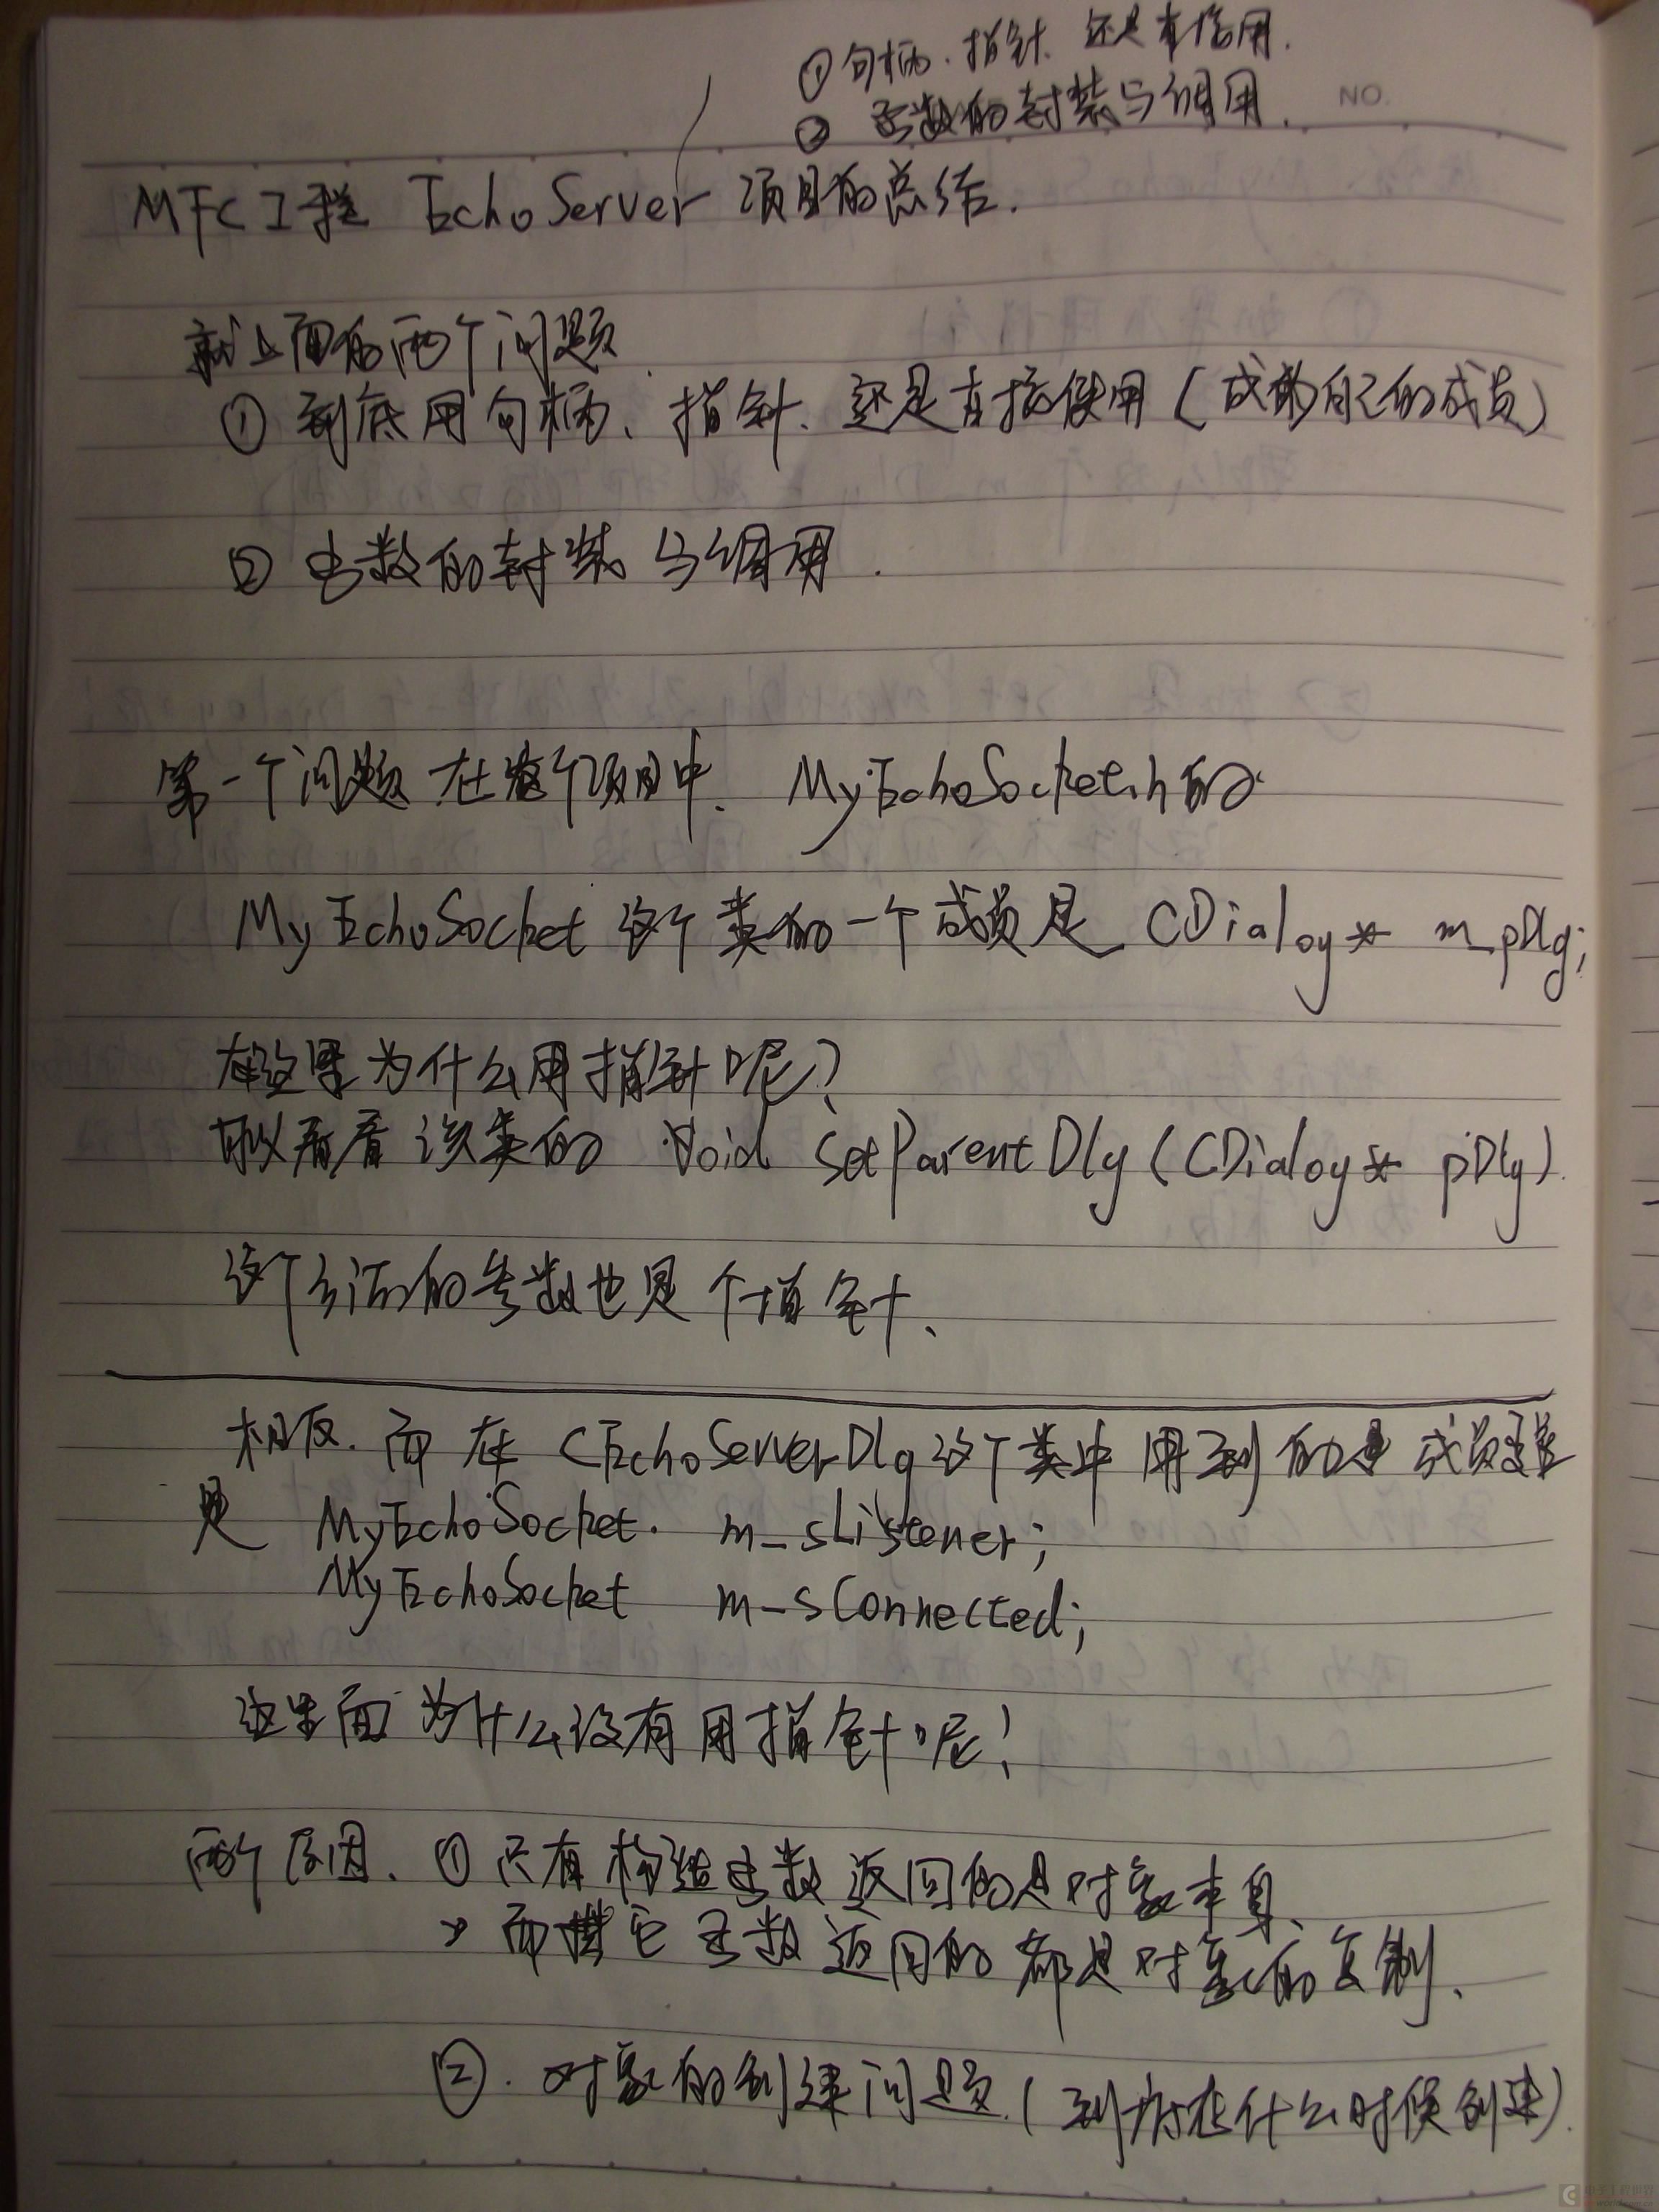 ① 句柄、指针、还是直接用.
② 函数的封装与调用.
NO.
MFC工程 EchoServer 项目的总结.
就上面的两个问题.
① 到底用句柄、指针、还是直接使用(成为自己的成员)
② 函数的封装与调用.
第一个问题 在这个项目中. MyEchoSocket.h 的
MyEchoSocket 这个类的一个成员是 CDialog* m_pDlg;
在这里为什么用指针呢?
可以看看该类的 void SetParentDlg(CDialog* pDlg).
这个方法的参数也是个指针.
相反. 而在 CEchoServerDlg 这个类中用到的 成员变量
是 MyEchoSocket. m_sListener;
MyEchoSocket m_sConnected;
这里面为什么没有用指针呢?
两个原因. ① 只有构造函数返回的是对象本身、
而其它函数返回的都是对象的复制.
②. 对象的创建问题.(到底在什么时候创建).